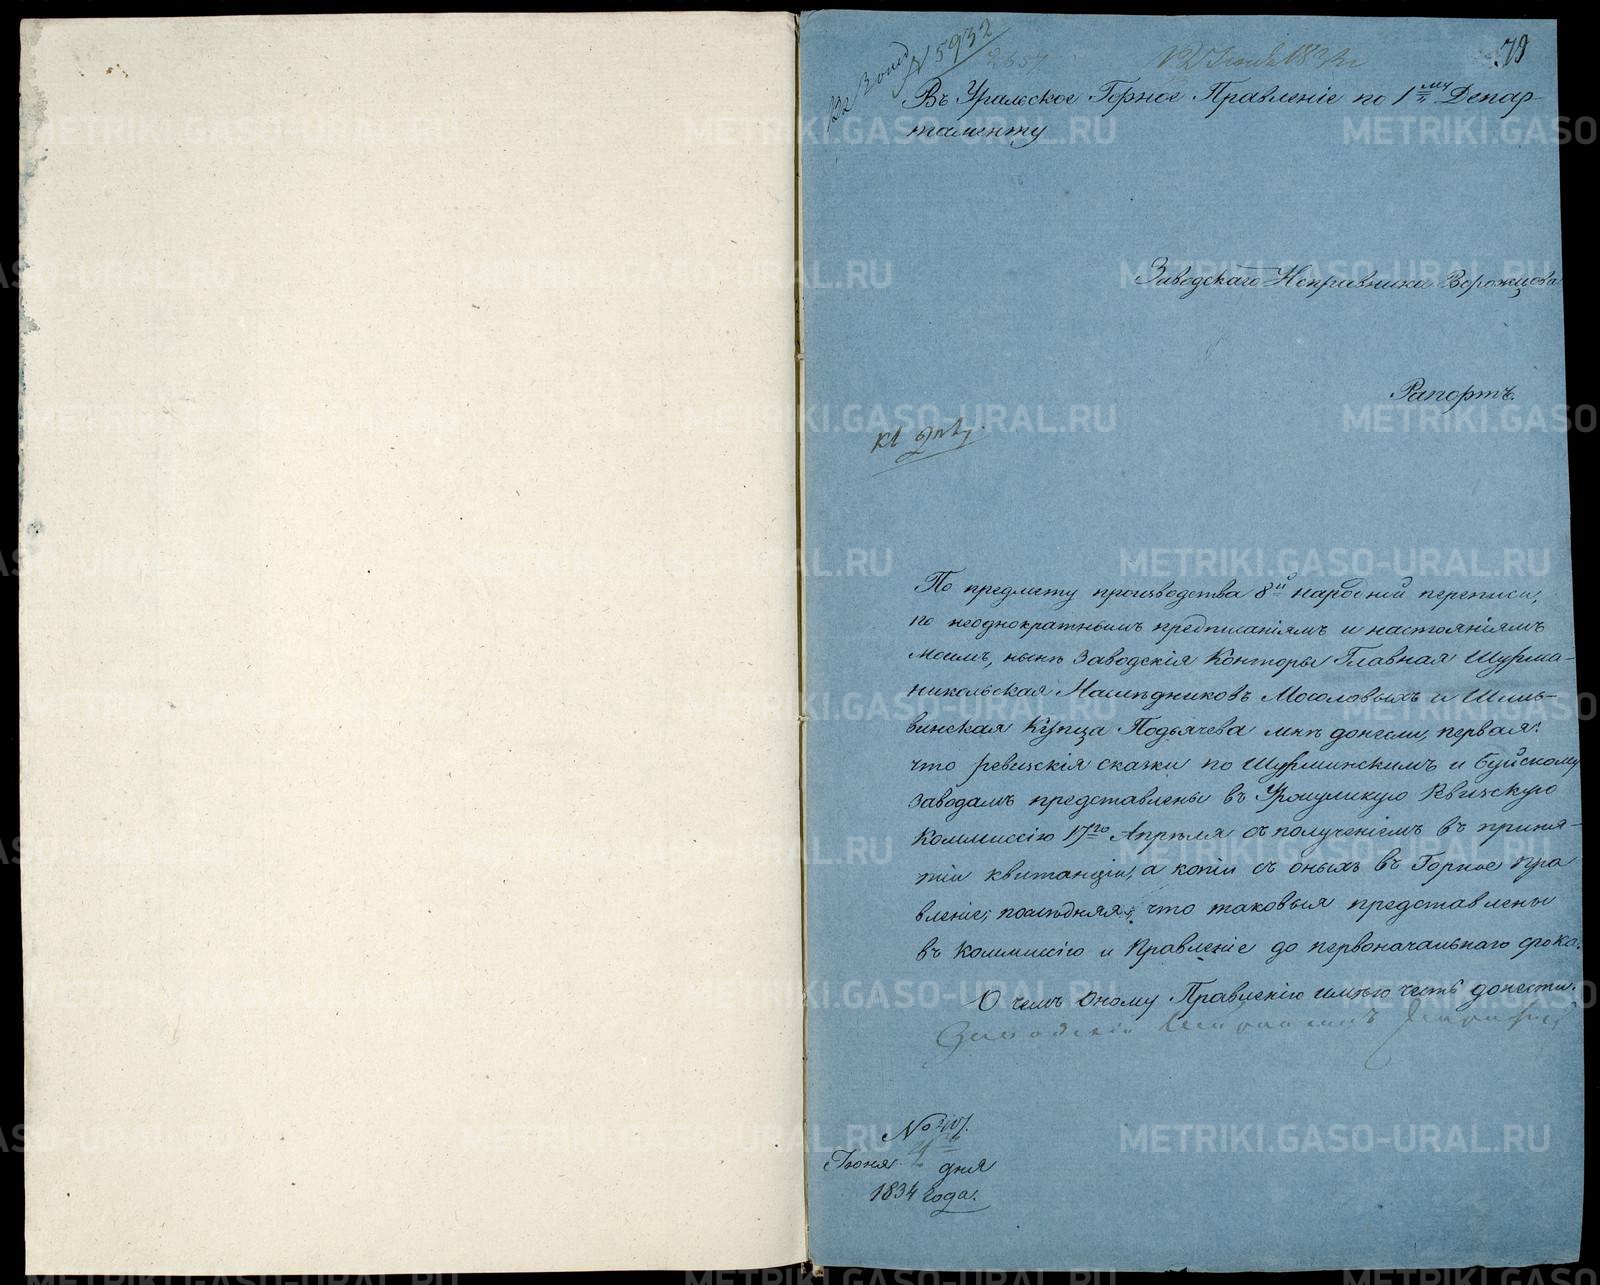 № 5932
79
Въ Уральское Горное Правленіе по 1му Депар-
таменту
Заводскаго Исправника Ворожцова
Рапортъ.
къ дѣлу
По предмету производства 8й народной переписи,
по неоднократнымъ предписаніямъ и настояніямъ
моимъ, нынѣ Заводскія Конторы Главная Шурма-
никольская Наслѣдниковъ Мосоловыхъ и Шиль-
винская Купца Подьячева мнѣ донесли, первая:
что ревизскія сказки по Шурминскимъ и Буйскому
заводамъ представлены въ Уржумскую Ревизскую
Коммиссію 17го Апрѣля съ полученіемъ въ приня-
тіи квитанціи, а копіи съ оныхъ въ Горное пра
вленіе; послѣдняя, что таковыя представлены
въ Коммиссію и Правленіе до первоначальнаго срока.
О чемъ Оному Правленію имѣю честь донести.
Заводскій Исправникъ
№
Іюня дня
1834 года.
METRIKI.GASO-URAL.RU